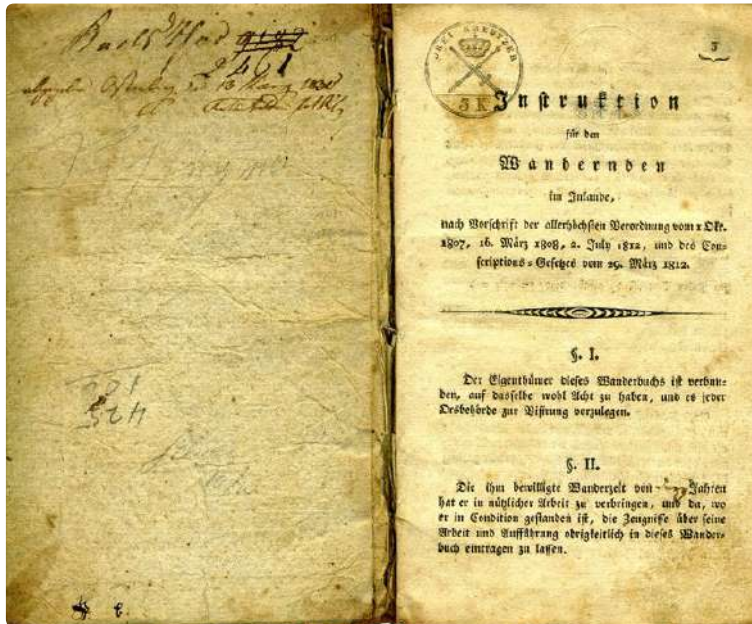 2461
13 März 1830
104
425
DREI KREUTZER
3 K
3
Instruktion
für den
Wandernden
im Inlande,
nach Vorschrift der allerhöchsten Verordnung vom 1 Okt.
1807, 16. März 1808, 2. July 1812, und des Con-
scriptions-Gesetzes vom 29. März 1812.
§. I.
Der Eigenthümer dieses Wanderbuchs ist verbun-
den, auf dasselbe wohl Acht zu haben, und es jeder
Ortsbehörde zur Visirung vorzulegen.
§. II.
Die ihm bewilligte Wanderzeit von Jahren
hat er in nützlicher Arbeit zu verbringen, und da, wo
er in Condition gestanden ist, die Zeugnisse über seine
Arbeit und Aufführung obrigkeitlich in dieses Wander-
buch eintragen zu lassen.